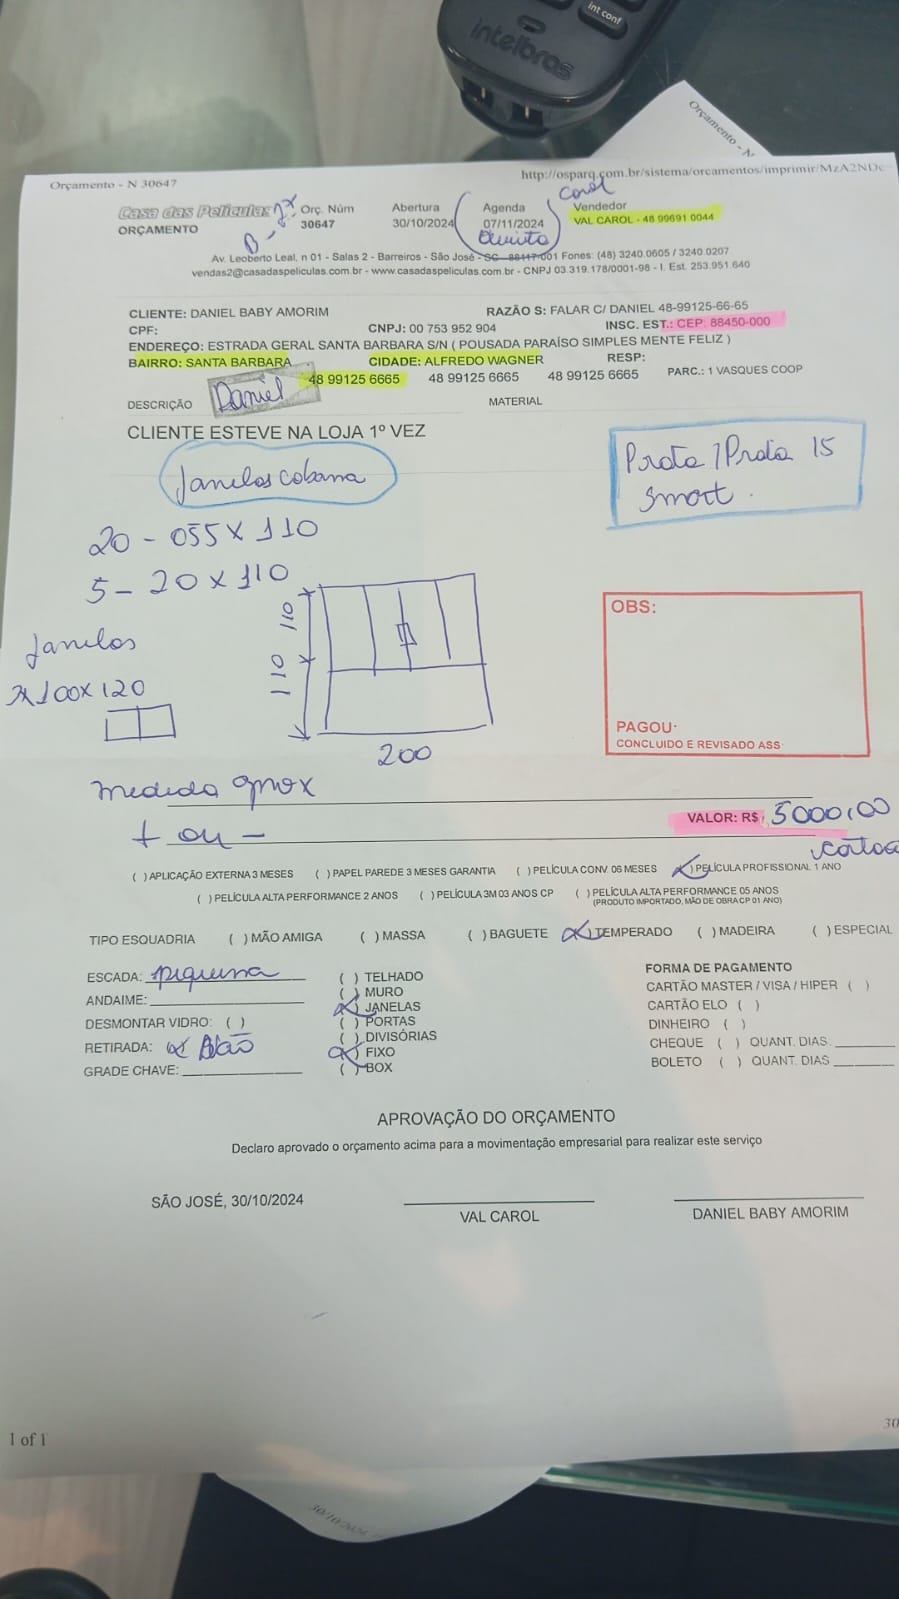 int conf
intelbras
Orçamento - N
Orçamento - N 30647
http://osparq.com.br/sistema/orcamentos/imprimir/MzA2NDc
Carol
Casa das Películas
Orç. Núm
Abertura
Agenda
Vendedor
ORÇAMENTO
30647
30/10/2024
07/11/2024
VAL CAROL - 48 99691 0044
Quinta
Av. Leoberto Leal, n 01 - Salas 2 - Barreiros - São José - SC - 88117-001 Fones: (48) 3240.0605 / 3240.0207
vendas2@casadaspeliculas.com.br - www.casadaspeliculas.com.br - CNPJ 03.319.178/0001-98 - I. Est. 253.951.640
CLIENTE: DANIEL BABY AMORIM
RAZÃO S: FALAR C/ DANIEL 48-99125-66-65
CPF:
CNPJ: 00 753 952 904
INSC. EST.: CEP: 88450-000
ENDEREÇO: ESTRADA GERAL SANTA BARBARA S/N ( POUSADA PARAÍSO SIMPLES MENTE FELIZ )
BAIRRO: SANTA BARBARA
CIDADE: ALFREDO WAGNER
RESP:
48 99125 6665
48 99125 6665
48 99125 6665
PARC.: 1 VASQUES COOP
Daniel
DESCRIÇÃO
MATERIAL
CLIENTE ESTEVE NA LOJA 1º VEZ
Janelas cabana
Prata / Prata 15
Smart.
20 - 055 x 110
5 - 20 x 110
110
110
200
Janelas
100 x 120
OBS:
PAGOU
CONCLUIDO E REVISADO ASS
medida aprox
+ ou -
VALOR: R$ 5000,00
( ) APLICAÇÃO EXTERNA 3 MESES ( ) PAPEL PAREDE 3 MESES GARANTIA ( ) PELÍCULA CONV. 06 MESES (X) PELÍCULA PROFISSIONAL 1 ANO
( ) PELÍCULA ALTA PERFORMANCE 2 ANOS ( ) PELÍCULA 3M 03 ANOS CP ( ) PELÍCULA ALTA PERFORMANCE 05 ANOS
(PRODUTO IMPORTADO, MÃO DE OBRA CP 01 ANO)
TIPO ESQUADRIA ( ) MÃO AMIGA ( ) MASSA ( ) BAGUETE (X) TEMPERADO ( ) MADEIRA ( ) ESPECIAL
ESCADA: piquena
ANDAIME:
DESMONTAR VIDRO: ( )
RETIRADA: (X) Não
GRADE CHAVE:
( ) TELHADO
( ) MURO
(X) JANELAS
( ) PORTAS
( ) DIVISÓRIAS
(X) FIXO
( ) BOX
FORMA DE PAGAMENTO
CARTÃO MASTER / VISA / HIPER ( )
CARTÃO ELO ( )
DINHEIRO ( )
CHEQUE ( ) QUANT. DIAS:
BOLETO ( ) QUANT. DIAS
APROVAÇÃO DO ORÇAMENTO
Declaro aprovado o orçamento acima para a movimentação empresarial para realizar este serviço
SÃO JOSÉ, 30/10/2024
VAL CAROL
DANIEL BABY AMORIM
1 of 1
30